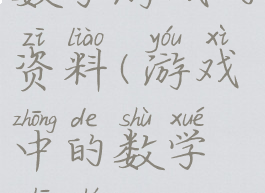 zī liào yóu xì
资料(游戏
zhōng de shù xué
中的数学